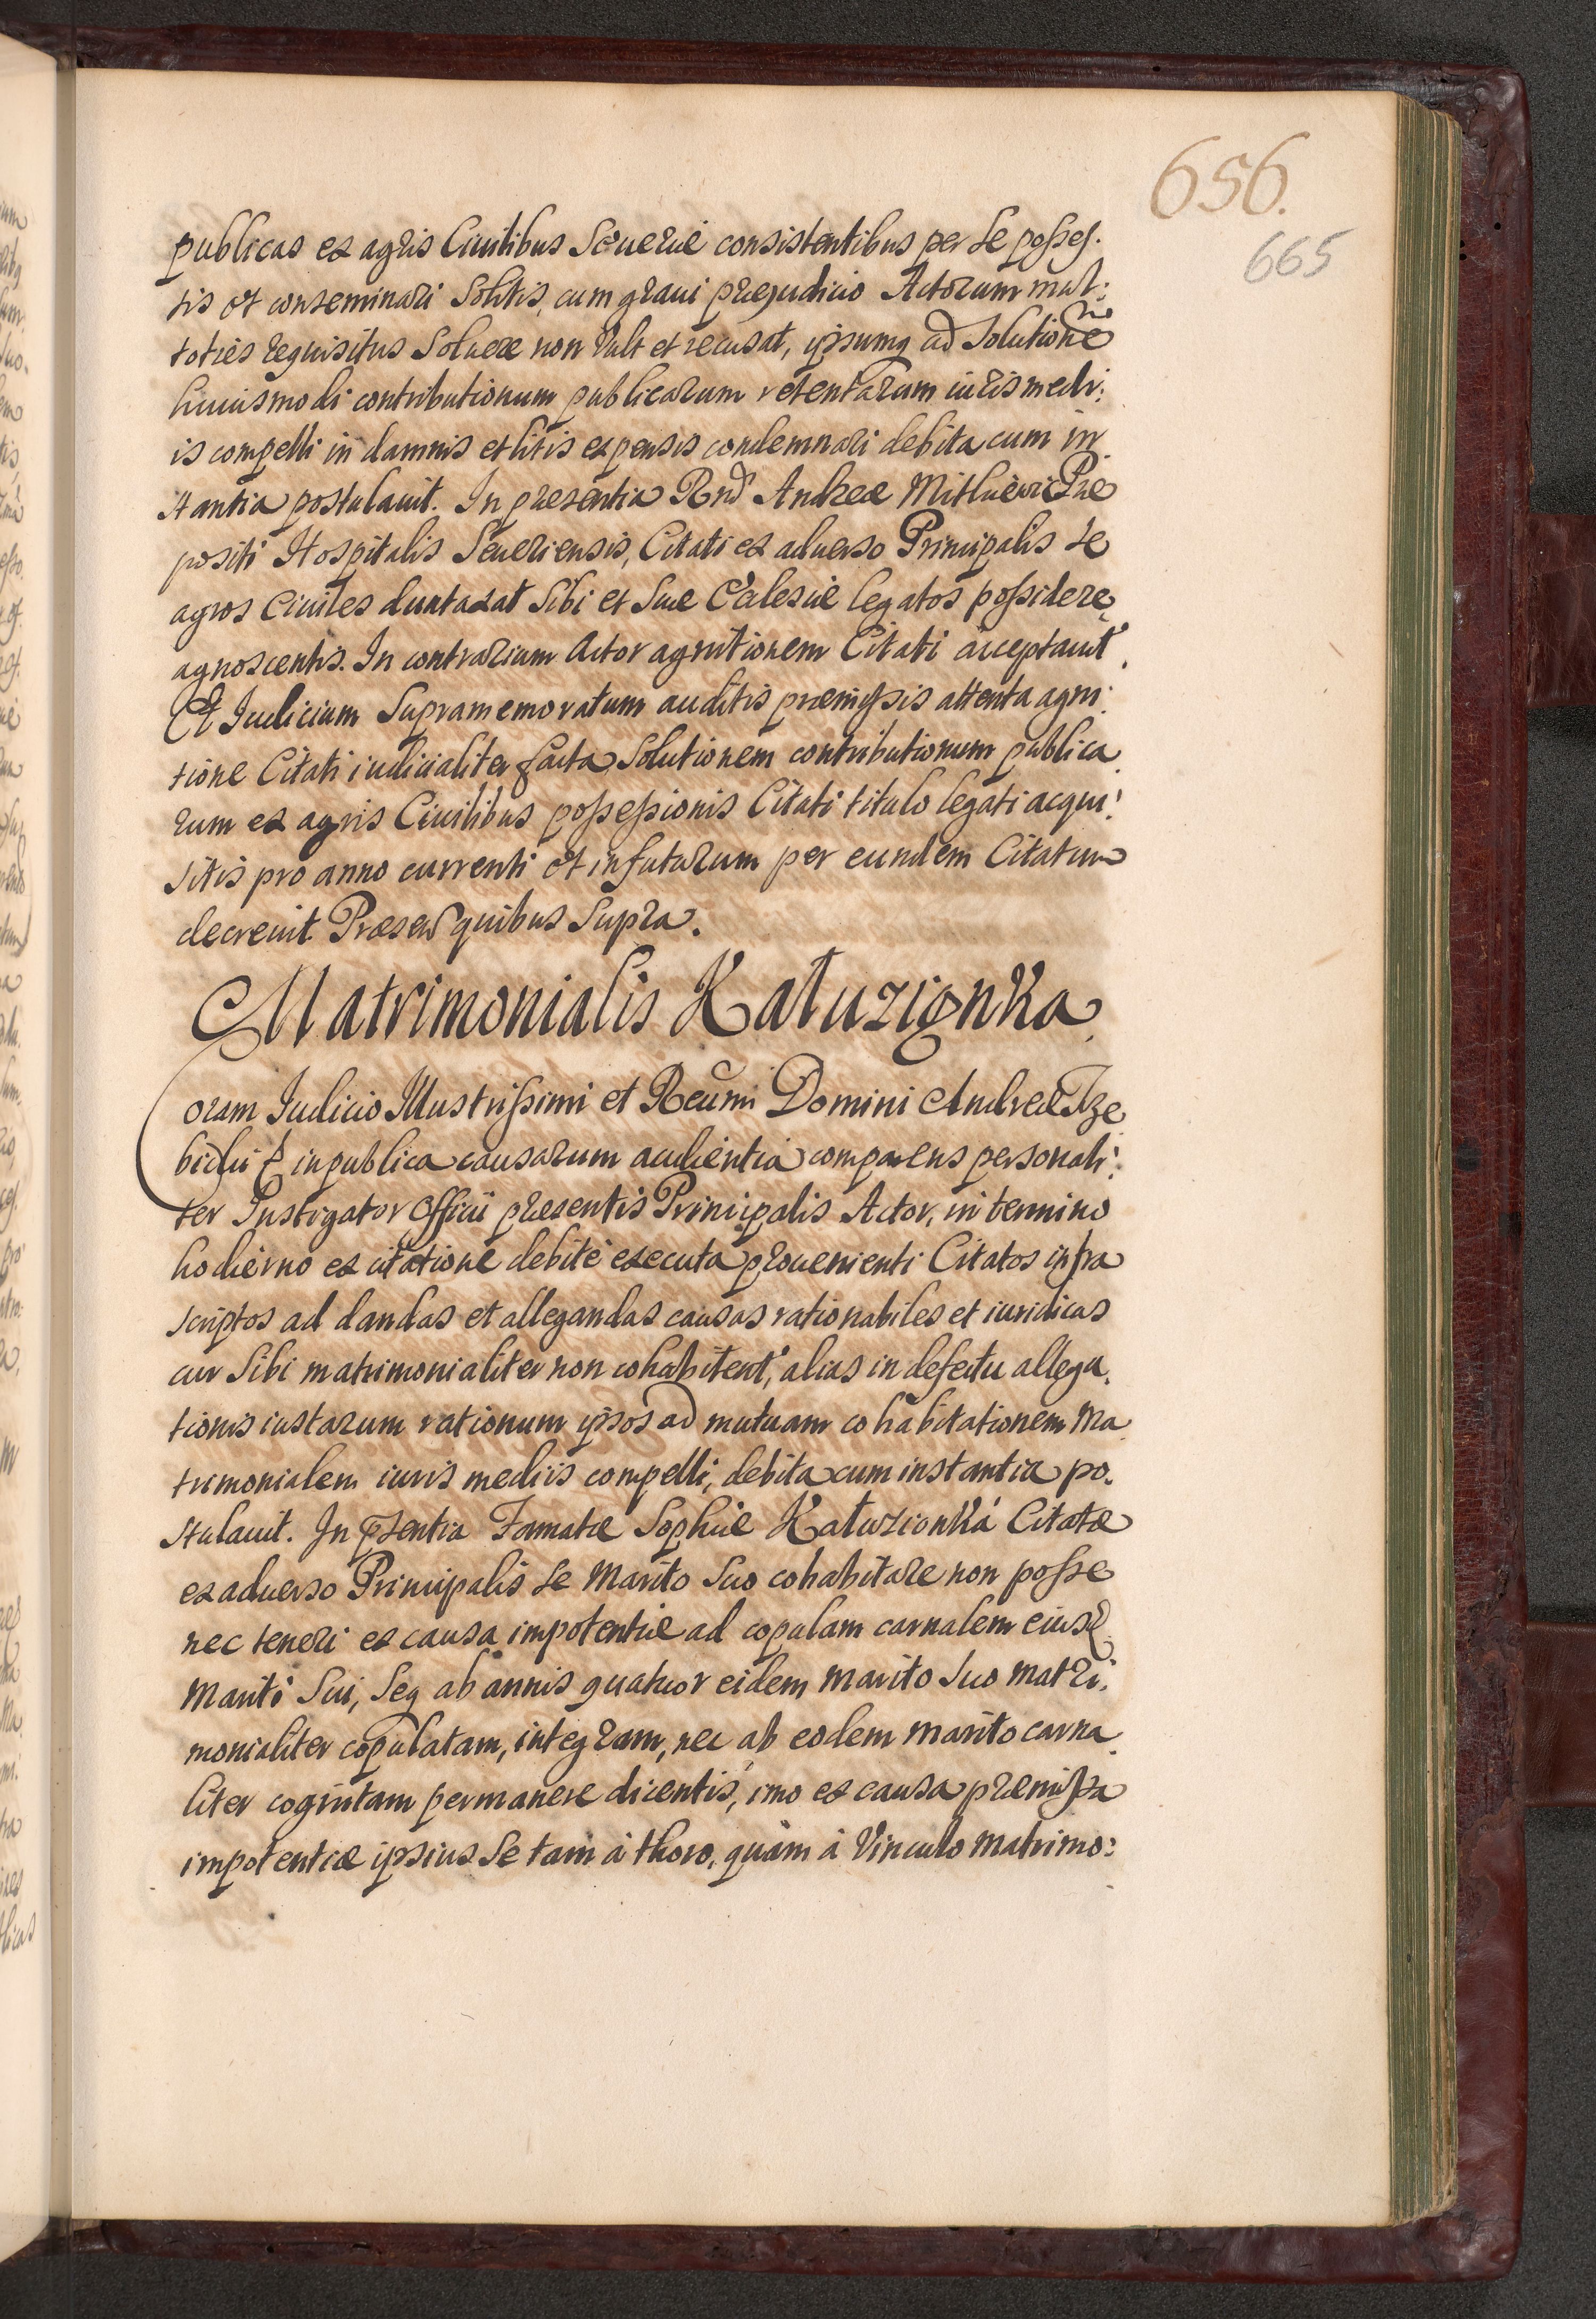 656.
665
publicas ex agris Ciuilibus Seueriæ consistentibus per se posses.
sis et conseminari Solitis, cum graui præjudicio Actorum mul:
toties requisitus Soluere non Vult et recusat, ipsumq ad Solutionē
huiusmodi contributionum publicarum retentarum iuris medi:
is compelli in damnis et litis expensis condemnari debita cum in
stantia postulauit. In præsentia Rnd Andreæ Præ
positi Hospitalis Seueriensis, Citati ex aduerso Principalis se
agros Ciuiles duntaxat Sibi et Suæ Ecclesiæ legatos possidere
agnoscentis. In contrarium Actor agnitionem Citati acceptauit.
Et Iudicium Supramemoratum auditis præmissis attenta agni:
tione Citati iudicialiter facta Solutionem contributionum publica
rum ex agris Ciuilibus possessionis Citati titulo legati acqui:
sitis pro anno currenti et infuturum per eundem Citatum
decreuit Præsen quibus Supra.
Matrimonialis Kałuzionka.
Coram Iudicio Illustrissimi et Reumi Domini Andreæ Trze
bicki & in publica causarum audientia comparens personali:
ter Instigator Officii præsentis Principalis Actor, in termino
hodierno ex citatione debite executa prouenienti Citatos infra
scriptos ad dandas et allegandas causas rationabiles et iuridicas
cur Sibi matrimonialiter non cohabitent, alias in defectu allega.
tionis iustarum rationum ipsos ad mutuam cohabitationem Ma
trimonialem iuris mediis compelli, debita cum instantia po.
stulauit. In pſentia Famatæ Sophiæ Kałuzionka Citatæ
ex aduerso Principalis se Marito Suo cohabitare non posse
nec teneri ex causa impotentiæ ad copulam carnalem eiusd
Mariti Sui, Seq ab annis quatuor eidem marito Suo matri.
monialiter copulatam, integram, nec ab eodem marito carna
liter cognitam permanere dicentis, imo ex causa præmissa
impotentiæ ipsius Se tam à thoro, quàm à Vinculo matrimo: